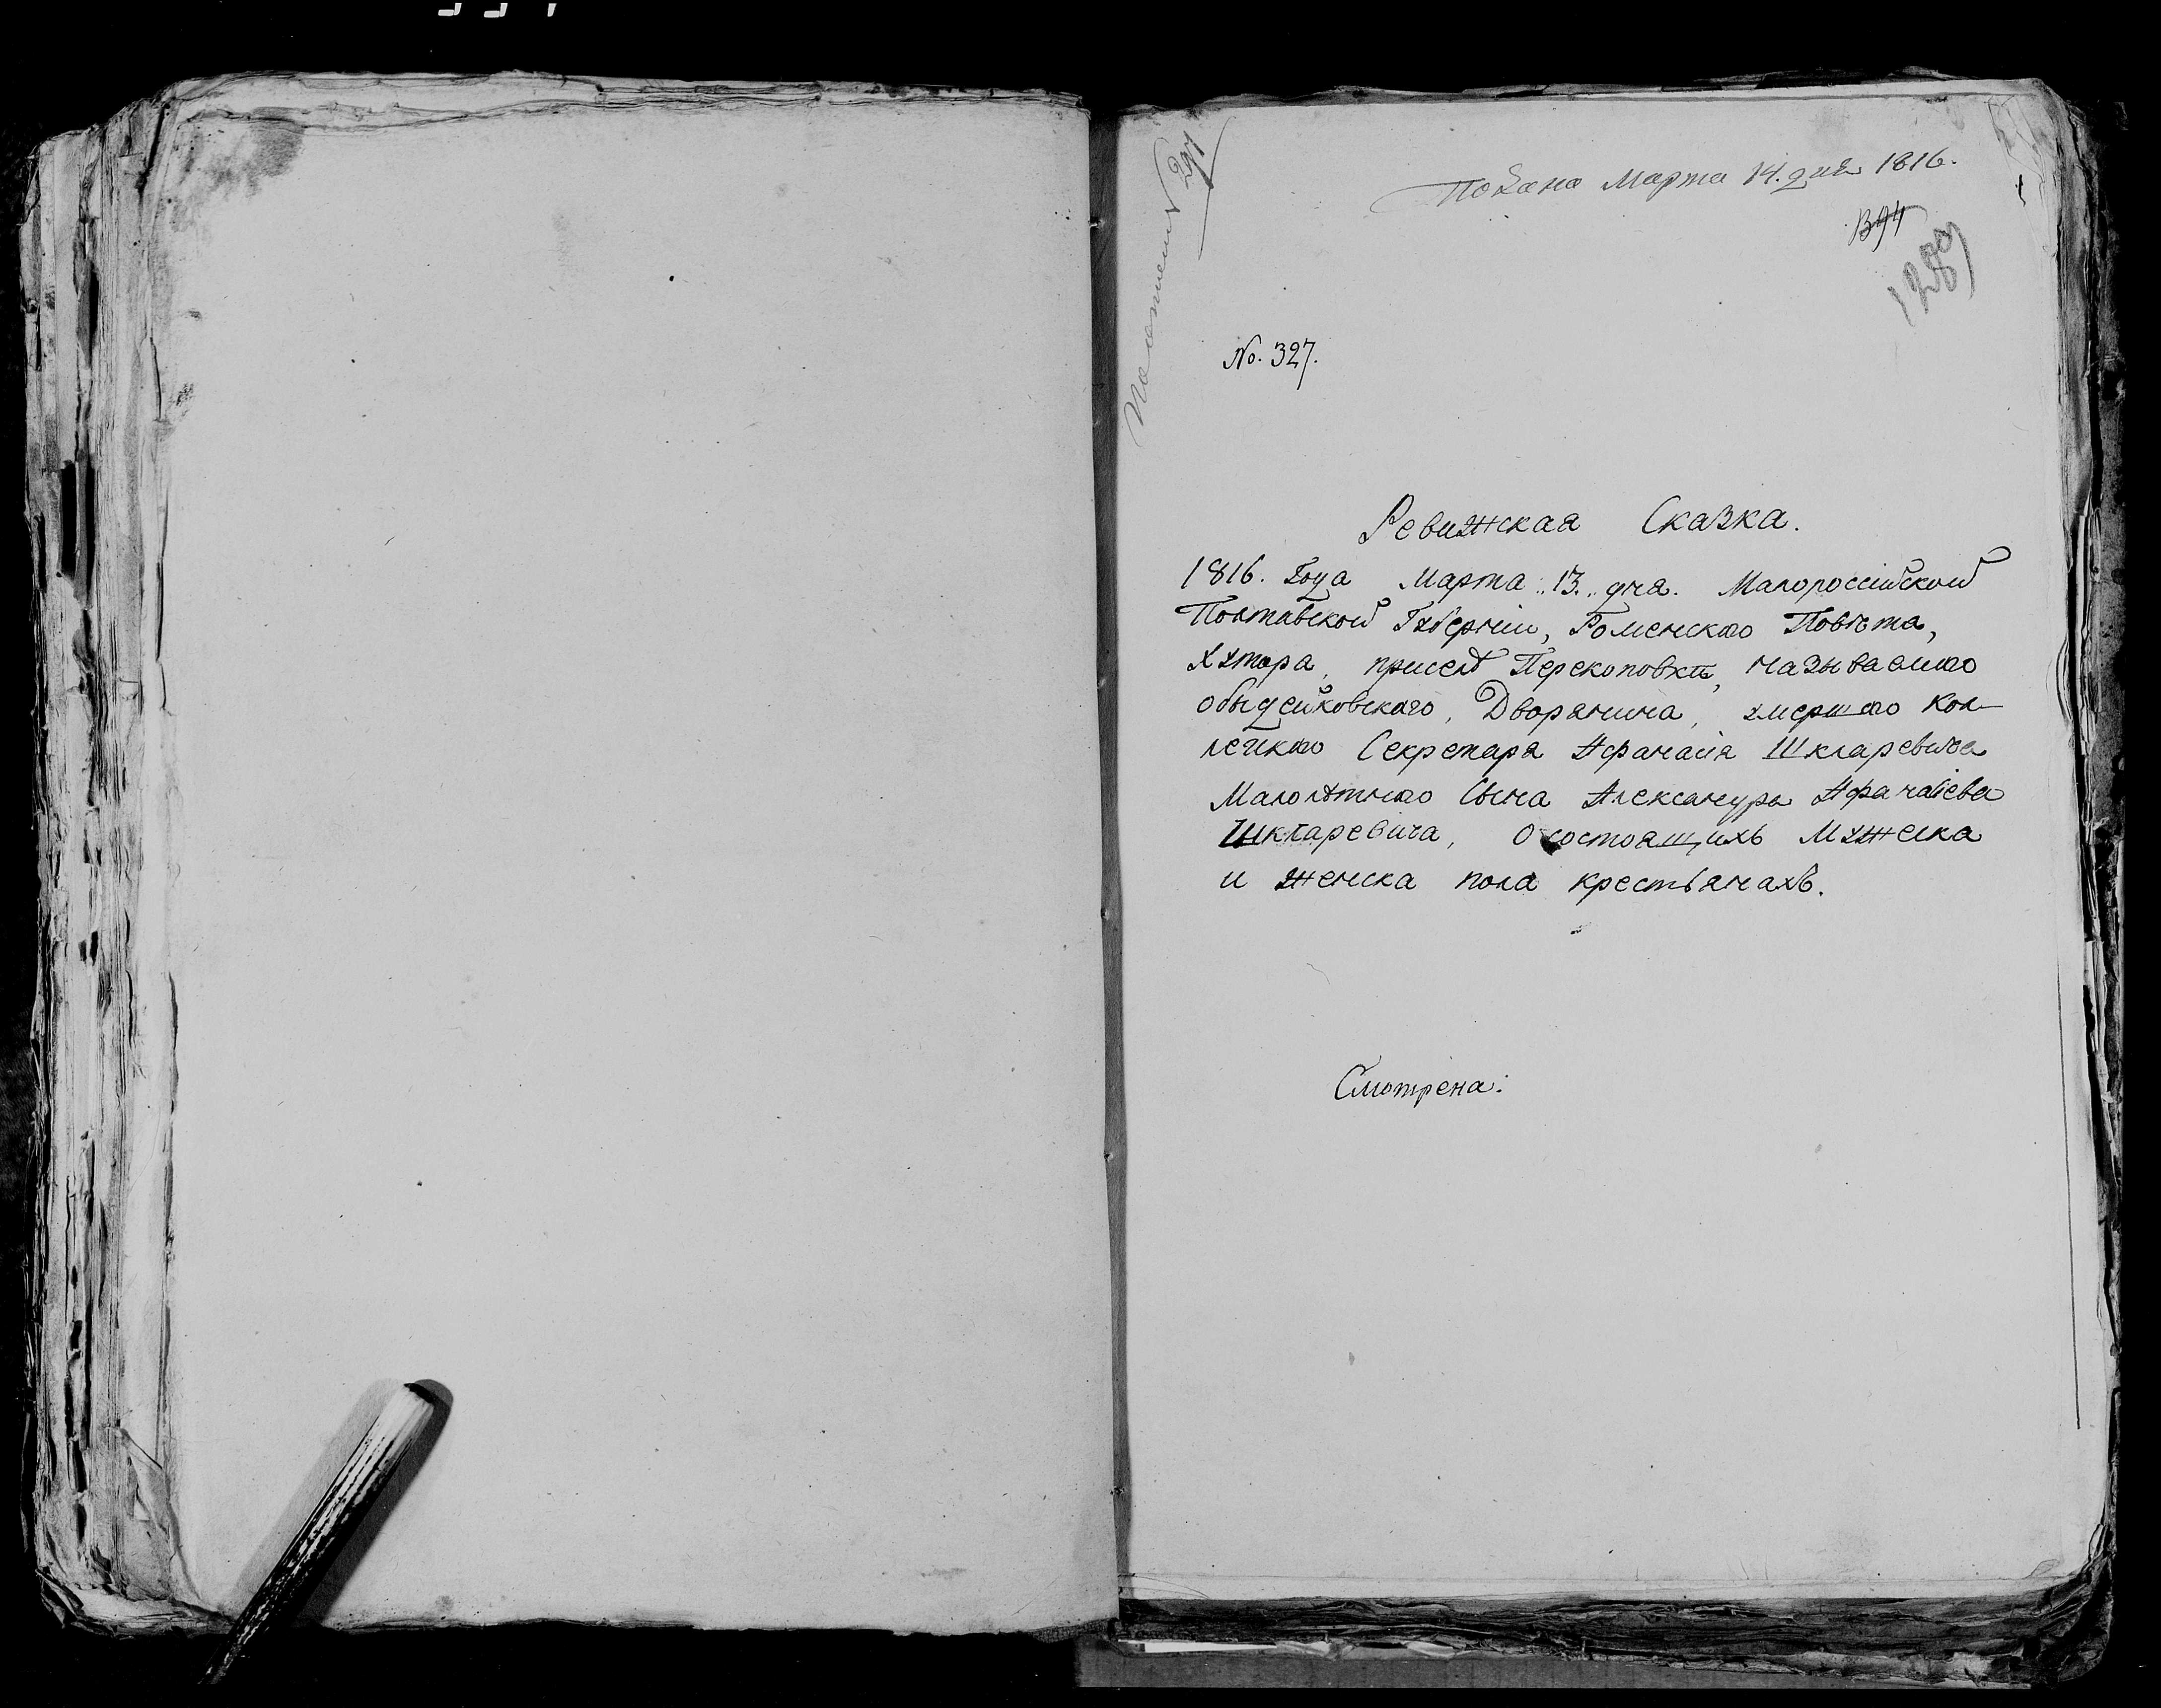 Подана Марта 14. дня 1816.
1289
No. 327.
Ревижская Сказка.
1816. Года Марта „13.„ дня. Малороссійской
Полтавской Губерніи, Роменскаго Повѣта,
хутора, приселѣ Перекоповки, называемаго
обыдейковскаго, Дворянина, умершаго кол-
лежскаго Секретаря Афанасія Шкларевича
Малолѣтнаго Сына Александра Афанасіева
Шкларевича, о состоящихъ Мужеска
и женска пола крестьянахъ.
Смотрена: